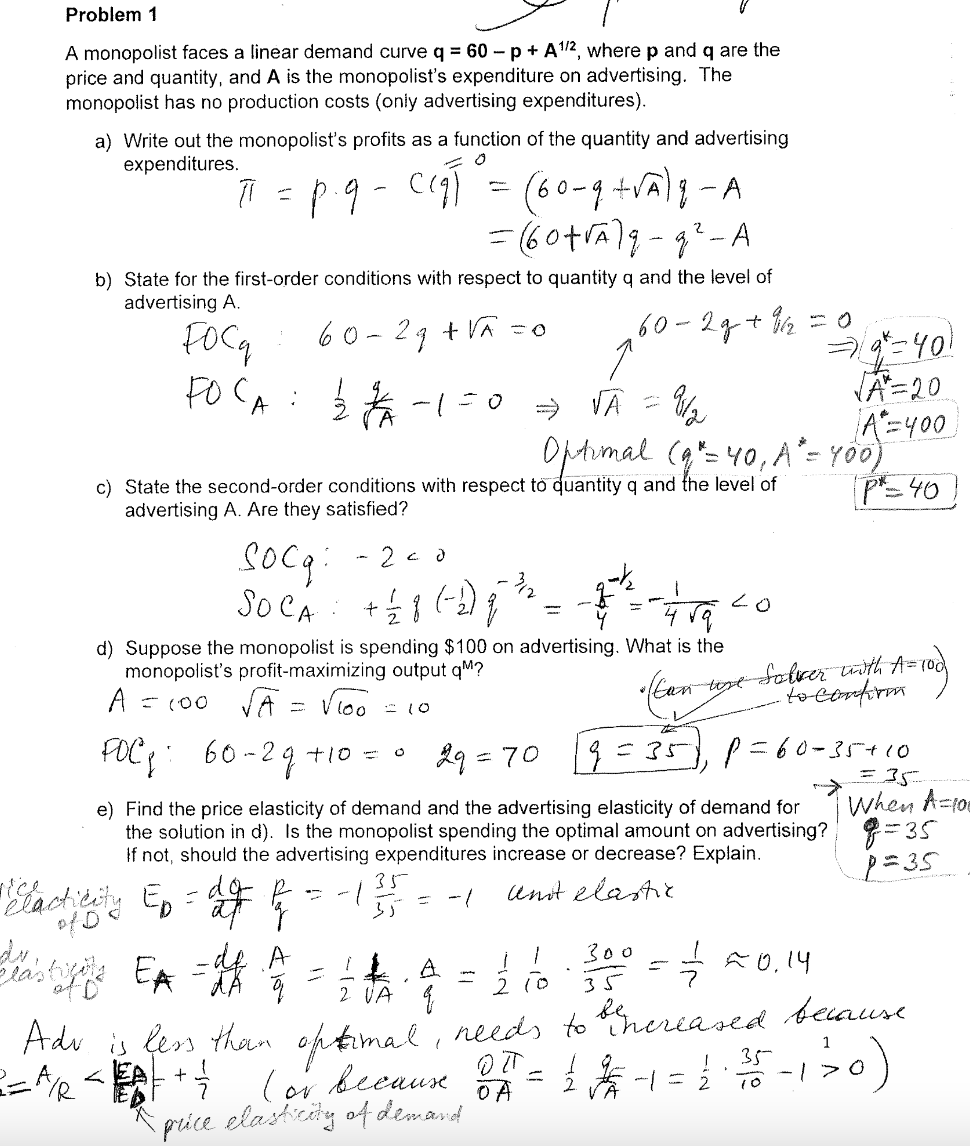 Problem 1
A monopolist faces a linear demand curve q = 60 – p + A^1/2, where p and q are the
price and quantity, and A is the monopolist's expenditure on advertising. The
monopolist has no production costs (only advertising expenditures).
a) Write out the monopolist's profits as a function of the quantity and advertising
expenditures.
= 0
π = p·q - C(q) = (60-q+√A)q - A
= (60+√A)q - q² - A
b) State for the first-order conditions with respect to quantity q and the level of
advertising A.
FOCq : 60-2q+√A = 0
60-2q+q/2 = 0
⇒ q*=40
FOCA : 1/2 q/√A - 1 = 0 ⇒ √A = q/2
√A*=20
A*=400
Optimal (q*=40, A*=400)
p*=40
c) State the second-order conditions with respect to quantity q and the level of
advertising A. Are they satisfied?
SOCq: -2 < 0
SOCA: +1/2 q (-1/2) q^-3/2 = - q^-1/2/4 = - 1/4√q < 0
d) Suppose the monopolist is spending $100 on advertising. What is the
monopolist's profit-maximizing output qᴹ?
(Can use Solver with A=100
to confirm)
A = 100 √A = √100 = 10
FOCq: 60-2q+10 = 0 2q = 70 q = 35, p = 60-35+10
= 35
e) Find the price elasticity of demand and the advertising elasticity of demand for
the solution in d). Is the monopolist spending the optimal amount on advertising?
If not, should the advertising expenditures increase or decrease? Explain.
→ When A=100
q=35
p=35
elasticity of D ED = dq/dp p/q = -1 35/35 = -1 unit elastic
of D EA = dq/dA · A/q = 1/2 1/√A · A/q = 1/2 1/10 · 300/35 = 1/7 ≈ 0.14
Adv is less than optimal, needs to be increased because
= A/R < |EA/ED| = + 1/7 (or because ∂π/∂A = 1/2 q/√A - 1 = 1/2 · 35/10 - 1 > 0)
price elasticity of demand